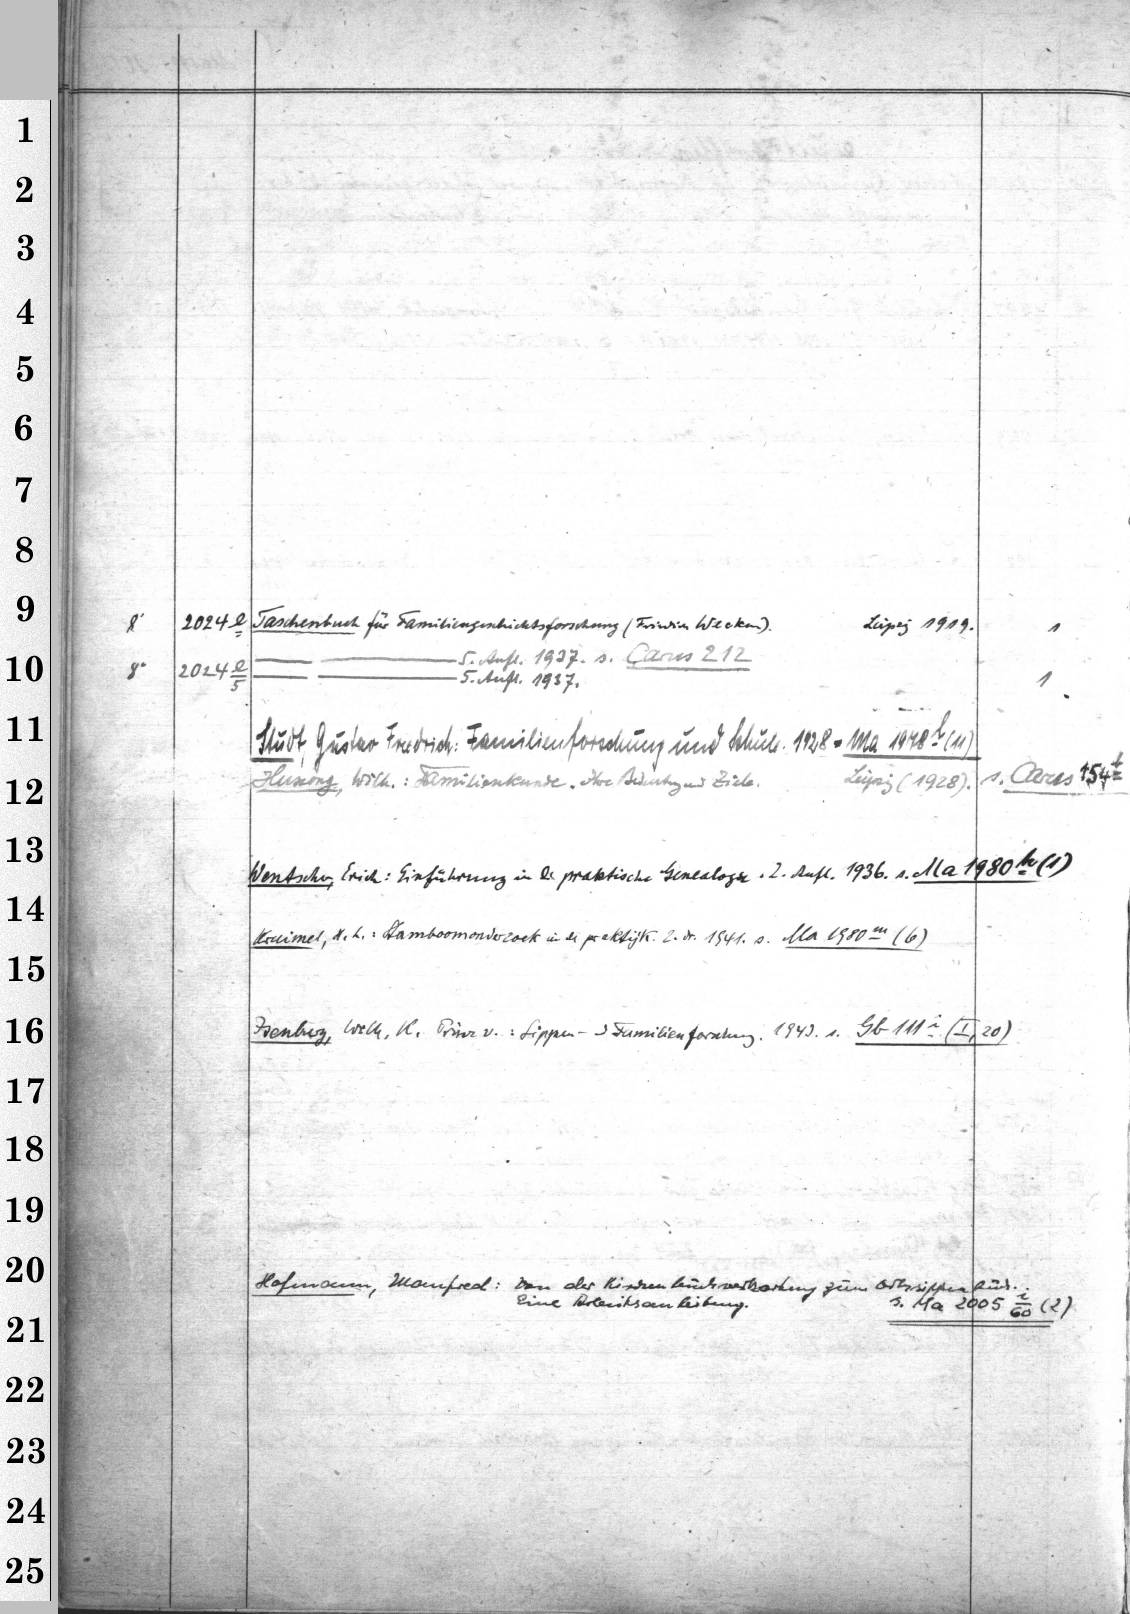 1
2
3
4
5
6
7
8
9
8° 2024 e Taschenbuch für Familiengeschichtsforschung (Friedrich Wecken). Leipzig 1919. 1
10
5. Aufl. 1937. s. Carus 212
8° 2024 e/5 5. Aufl. 1937. 1
11
Studt, Gustav Friedrich: Familienforschung und Schule. 1928 = Ma 1948 h (11)
12
Hussong, Wilh.: Familienkunde. Ihre Bedeutung und Ziele. Leipzig (1928). s. Carus 154 t
13
Wentscher, Erich: Einführung in die praktische Genealogie. 2. Aufl. 1936. s. Ma 1980 (1)
14
: Stamboomonderzoek in de praktijk. 2. dr. 1941. s. Ma 1980 m (6)
15
16
Isenburg, Wilh. K. Prinz v.: Sippen- u Familienforschung. 1943. s. Gb 111 i (I, 20)
17
18
19
20
Hofmann, Manfred: Von der Kirchenbuchverkartung zum Ortssippenbuch.
Eine Arbeitsanleitung. s. Ma 2005 i/60 (2)
21
22
23
24
25